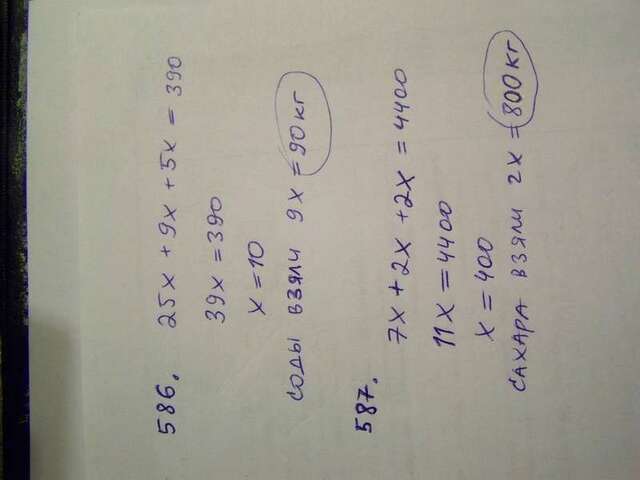 586. 25x + 9x + 5x = 390
39x = 390
x = 10
СОДЫ ВЗЯЛИ 9x = 90 кг
587. 7x + 2x + 2x = 4400
11x = 4400
x = 400
САХАРА ВЗЯЛИ 2x = 800 кг